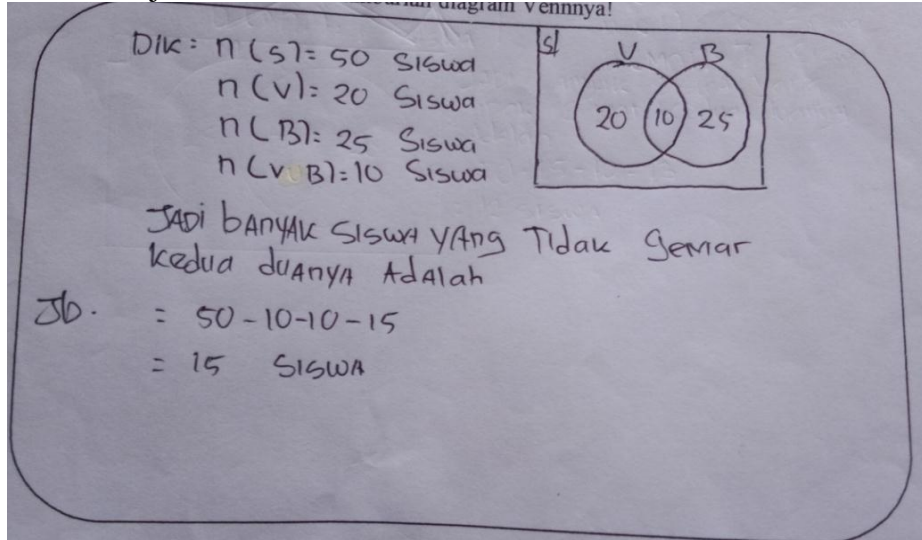 diagram Vennnya!
Dik: n(S)= 50 Siswa
n(V)= 20 Siswa
n(B)= 25 Siswa
n(V B)= 10 Siswa
S V B
20 10 25
JADi bAnyAk SiswA yAng Tidak gemar
kedua duAnyA AdAlah
Jb. = 50-10-10-15
= 15 SISWA